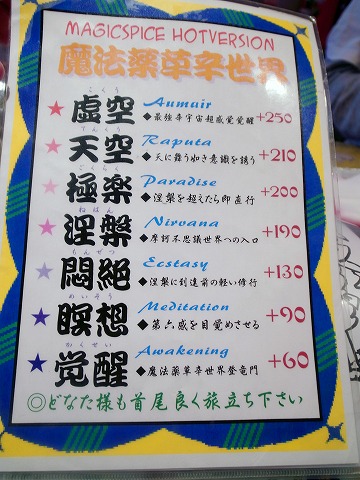 MAGICSPICE HOTVERSION
魔法薬草辛世界
こくう
★虚空 Aumair
◆最強辛宇宙超感覚覚醒 +250
てんくう
★天空 Raputa
◆天に舞う如き意識を誘う +210
★極楽 Paradise
◆涅槃を超えたら即直行 +200
ねはん
★涅槃 Nirvana
◆摩訶不思議世界への入口 +190
もんぜつ
★悶絶 Ecstasy
◆涅槃に到達前の軽い修行 +130
めいそう
★瞑想 Meditation
◆第六感を目覚めさせる +90
かくせい
★覚醒 Awakening
◆魔法薬草辛世界登竜門 +60
◎どなた様も首尾良く旅立ち下さい